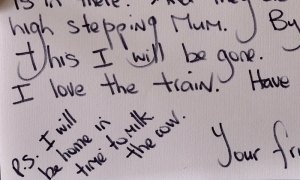 is in there.
high stepping Mum. By
this I will be gone.
I love the train. Have
P.S: I will
be home in
time to milk
the cow.
Your fri